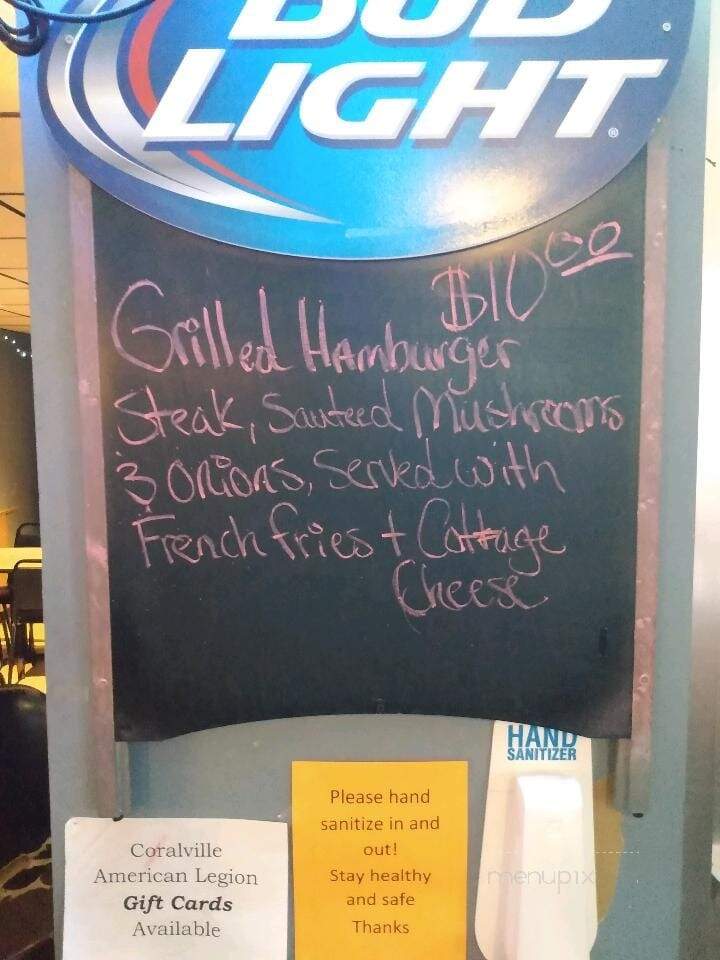 BUD
LIGHT®
$10.00
Grilled Hamburger
Steak, Sauteed Mushrooms
& Onions, Served with
French fries + Cottage
Cheese
HAND
SANITIZER
Please hand
sanitize in and
out!
Stay healthy
and safe
Thanks
Coralville
American Legion
Gift Cards
Available
menupix